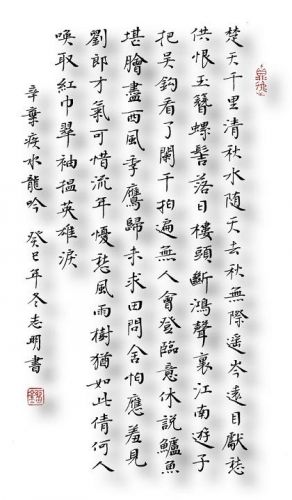 楚天千里清秋水随天去秋無際遥岑遠目獻愁
供恨玉簪螺髻落日樓頭斷鴻聲裏江南遊子
把吴鈎看了闌干拍遍無人會登臨意休說鱸魚
堪膾盡西風季鷹歸未求田問舍怕應羞見
劉郎才氣可惜流年憂愁風雨樹猶如此倩何人
喚取紅巾翠袖揾英雄淚
辛棄疾水龍吟 癸巳年冬志明書